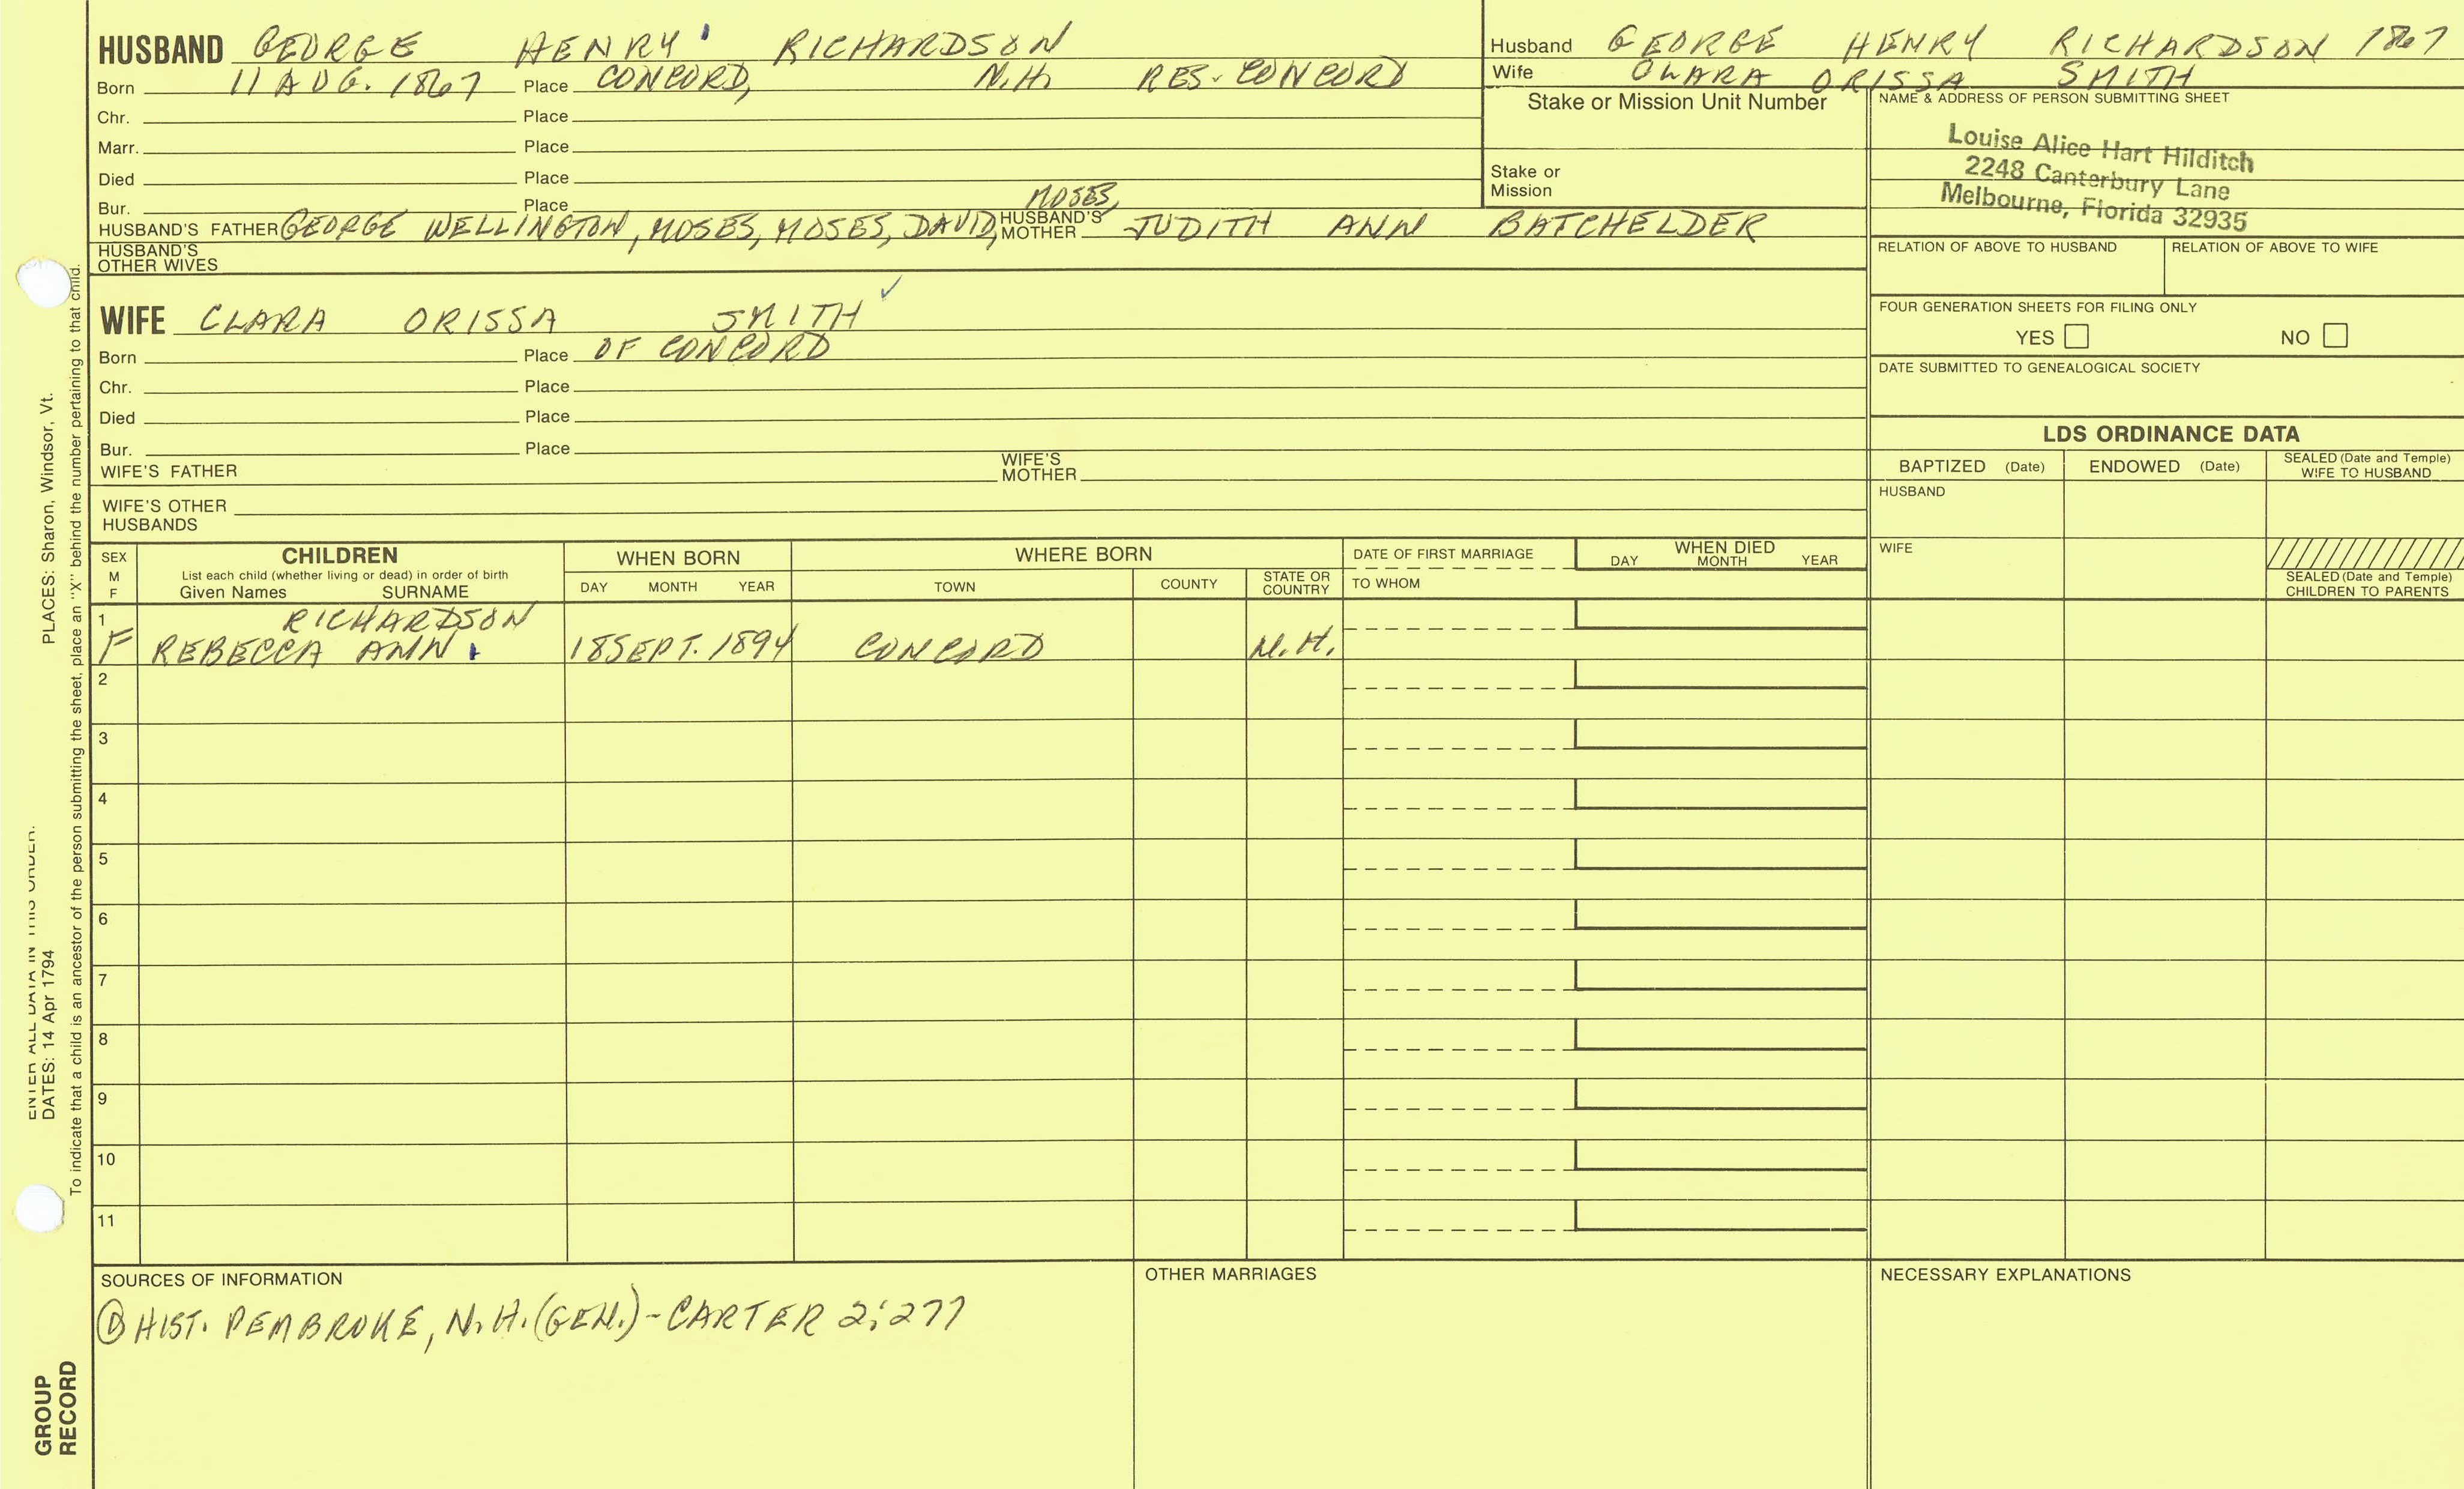 HUSBAND GEORGE HENRY RICHARDSON
Born 11 AUG. 1867 Place CONCORD, N.H. RES. CONCORD
Chr. Place
Marr. Place
Died Place
Bur. Place
MOSES,
HUSBAND'S FATHER GEORGE WELLINGTON, MOSES, MOSES, DAVID, HUSBAND'S MOTHER JUDITH ANN BATCHELDER
HUSBAND'S OTHER WIVES
Husband GEORGE HENRY RICHARDSON 1867
Wife CLARA ORISSA SMITH
Stake or Mission Unit Number
Stake or
Mission
NAME & ADDRESS OF PERSON SUBMITTING SHEET
Louise Alice Hart Hilditch
2248 Canterbury Lane
Melbourne, Florida 32935
RELATION OF ABOVE TO HUSBAND RELATION OF ABOVE TO WIFE
FOUR GENERATION SHEETS FOR FILING ONLY
YES NO
DATE SUBMITTED TO GENEALOGICAL SOCIETY
WIFE CLARA ORISSA SMITH ✓
Born Place OF CONCORD
Chr. Place
Died Place
Bur. Place
WIFE'S FATHER WIFE'S MOTHER
WIFE'S OTHER HUSBANDS
LDS ORDINANCE DATA
BAPTIZED (Date) ENDOWED (Date) SEALED (Date and Temple) WIFE TO HUSBAND
HUSBAND
WIFE
SEALED (Date and Temple) CHILDREN TO PARENTS
SEX M F
CHILDREN
List each child (whether living or dead) in order of birth
Given Names SURNAME
WHEN BORN
DAY MONTH YEAR
WHERE BORN
TOWN COUNTY STATE OR COUNTRY
DATE OF FIRST MARRIAGE
TO WHOM
WHEN DIED
DAY MONTH YEAR
1 RICHARDSON
F REBECCA ANN 18 SEPT. 1894 CONCORD N.H.
2
3
4
5
6
7
8
9
10
11
SOURCES OF INFORMATION
① HIST. PEMBROKE, N.H. (GEN.) - CARTER 2:277
OTHER MARRIAGES
NECESSARY EXPLANATIONS
ENTER ALL DATA IN THIS ORDER:
DATES: 14 Apr 1794 PLACES: Sharon, Windsor, Vt.
To indicate that a child is an ancestor of the person submitting the sheet, place an "X" behind the number pertaining to that child.
GROUP
RECORD